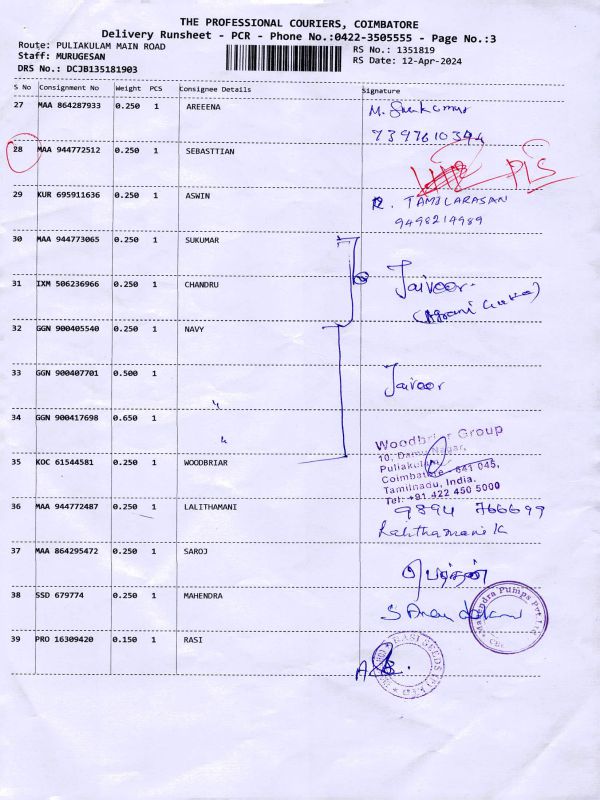 THE PROFESSIONAL COURIERS, COIMBATORE
Delivery Runsheet - PCR - Phone No.:0422-3505555 - Page No.:3
Route: PULIAKULAM MAIN ROAD
RS No.: 1351819
Staff: MURUGESAN
RS Date: 12-Apr-2024
DRS No.: DCJB135181903
S No Consignment No Weight PCS Consignee Details Signature
27 MAA 864287933 0.250 1 AREEENA
7397610344
28 MAA 944772512 0.250 1 SEBASTTIAN
PLS
29 KUR 695911636 0.250 1 ASWIN
R. TAMILARASAN
9498214989
30 MAA 944773065 0.250 1 SUKUMAR
31 IXM 506236966 0.250 1 CHANDRU
Jaivoor
32 GGN 900405540 0.250 1 NAVY
33 GGN 900407701 0.500 1 "
Jaivoor
34 GGN 900417698 0.650 1 "
Woodbriar Group
10, Damu Nagar,
Puliakulam
Coimbatore - 641 045,
Tamilnadu, India.
Tel: +91 422 450 5000
35 KOC 61544581 0.250 1 WOODBRIAR
36 MAA 944772487 0.250 1 LALITHAMANI
9894 766699
Lalithamani K
37 MAA 864295472 0.250 1 SAROJ
38 SSD 679774 0.250 1 MAHENDRA
Mahendra Pumps Pvt Ltd
39 PRO 16309420 0.150 1 RASI
RASI SEEDS